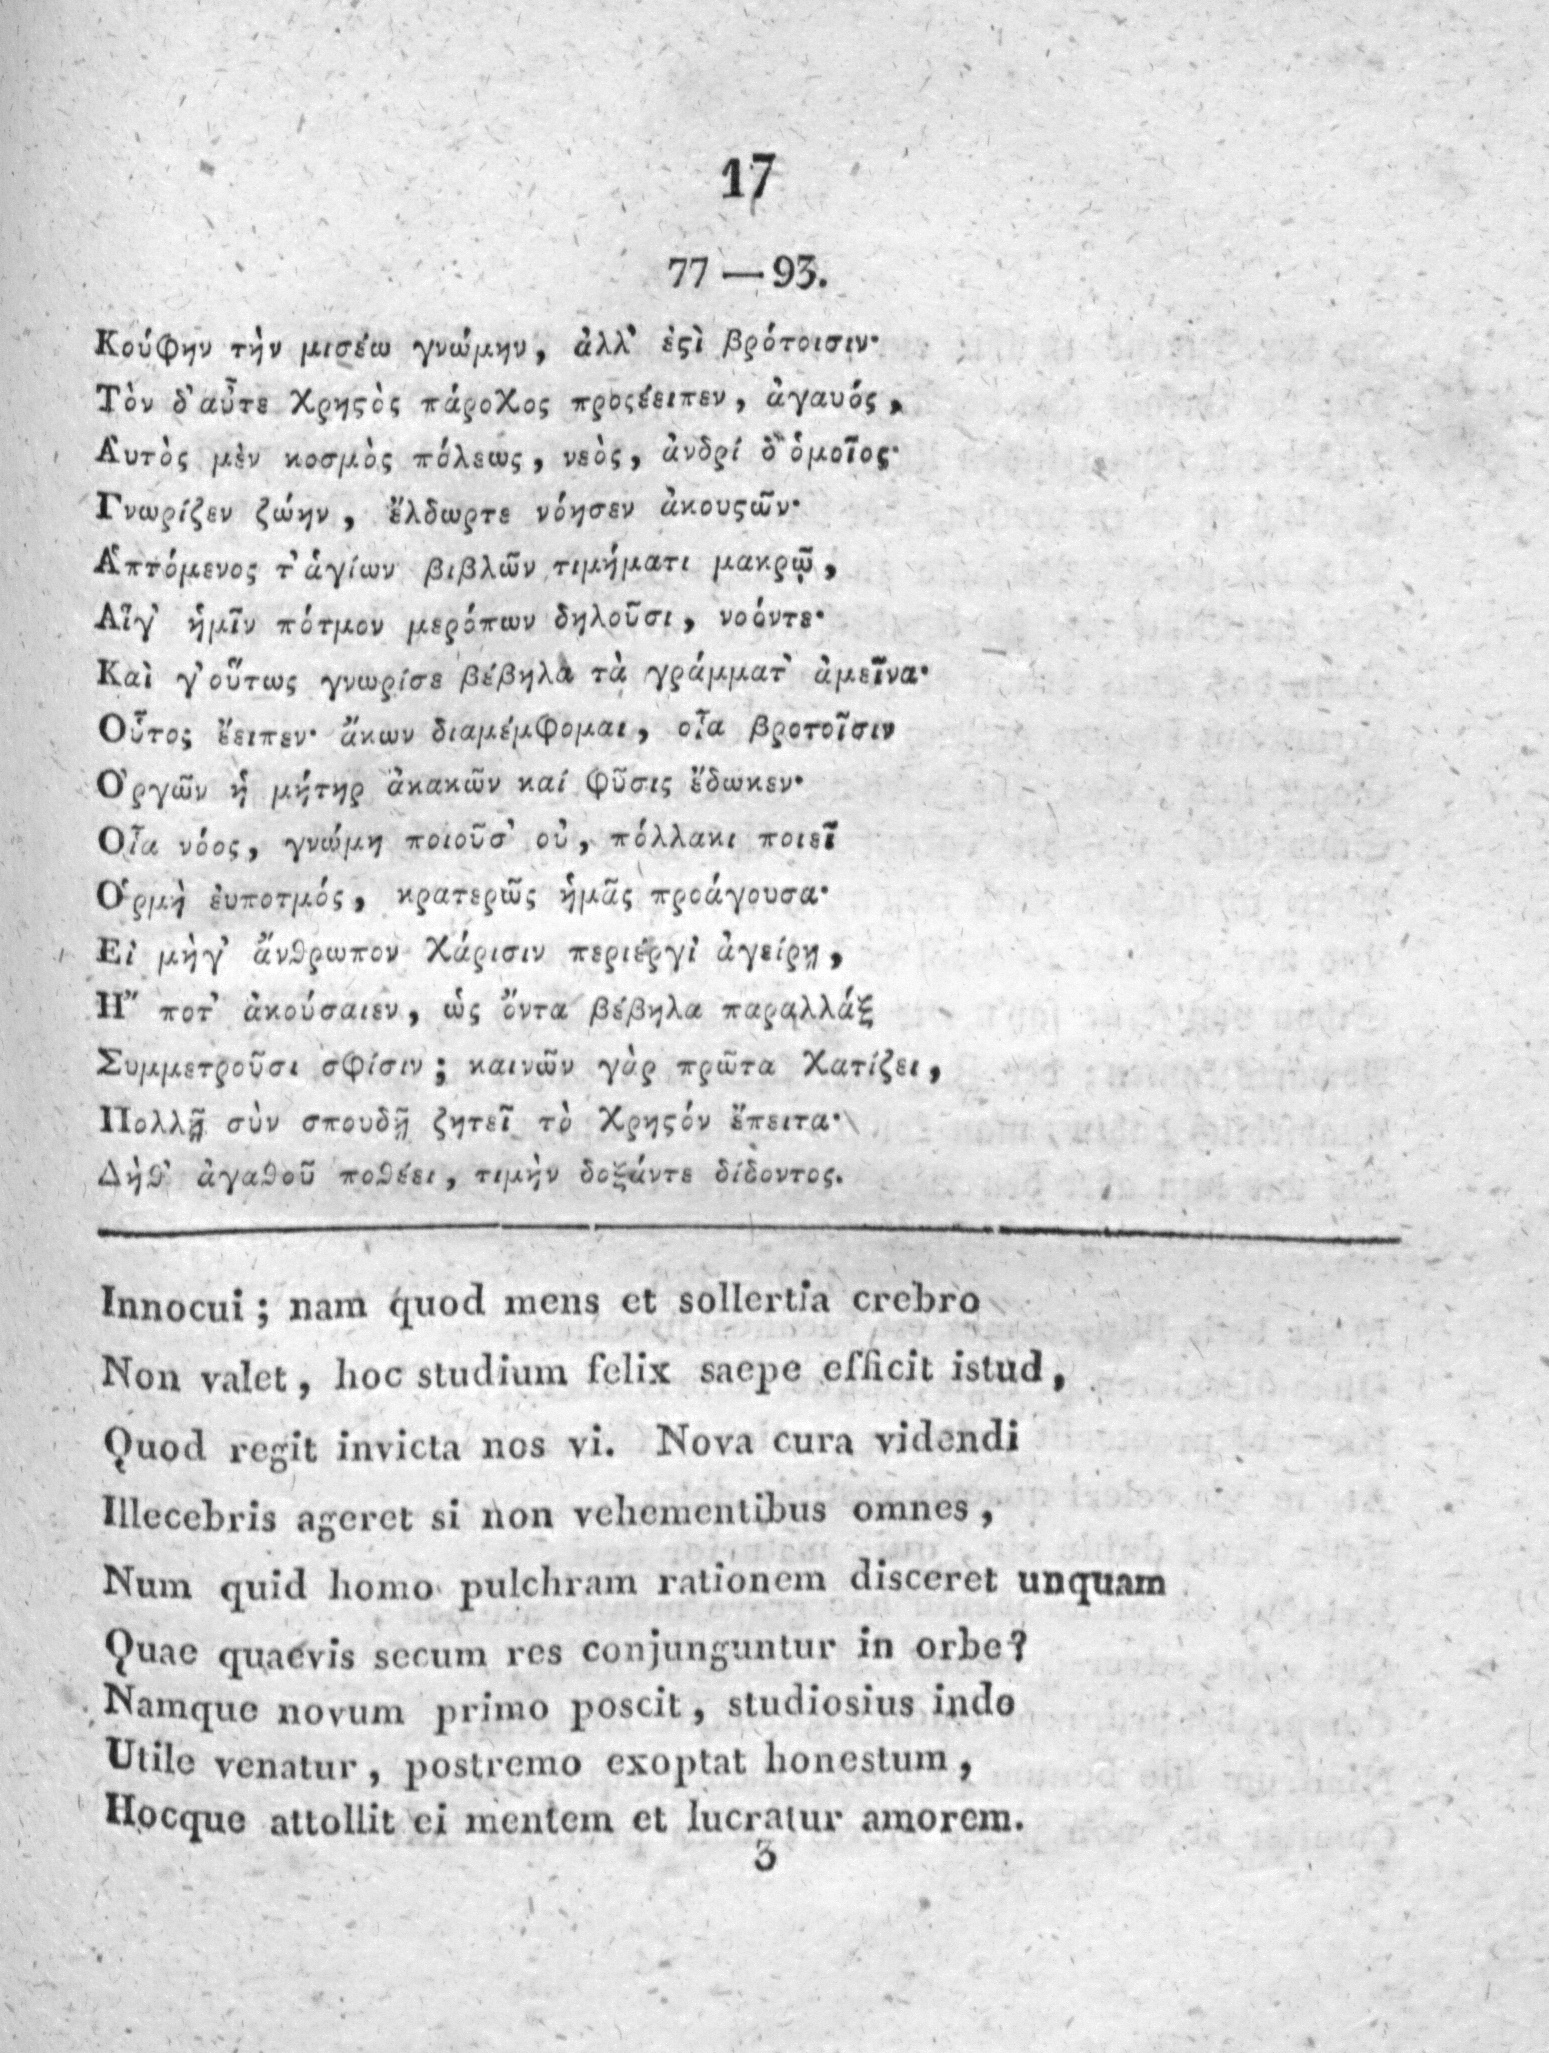 17
77 — 93.
Κούφην τὴν μισέω γνώμην, ἀλλ' ἐϛὶ βρότοισιν·
Τὸν δ'αὖτε Χρηϛὸς πάροΧος προςέειπεν, ἀγαυός,
Αὐτὸς μὲν κοσμὸς πόλεως, νεὸς, ἀνδρί δ'ὁμοῖος·
Γνωρίζεν ζώην, ἔλδωρτε νόησεν ἀκουςῶν·
Ἁπτόμενος τ'ἁγίων βιβλῶν τιμήματι μακρῷ,
Αἵγ' ἡμῖν πότμον μερόπων δηλοῦσι, νοόντε·
Καὶ γ'οὕτως γνωρίσε βέβηλα τὰ γράμματ' ἀμεῖνα·
Οὗτος ἔειπεν· ἄκων διαμέμφομαι, οἷα βροτοῖσιν
Ὀργῶν ἡ μήτηρ ἀκακῶν καί φῦσις ἔδωκεν·
Οἷα νόος, γνώμη ποιοῦσ' οὐ, πόλλακι ποιεῖ
Ὁρμὴ ἐυποτμός, κρατερῶς ἡμᾶς προάγουσα·
Εἰ μὴγ' ἄνθρωπον Χάρισιν περιέργι' ἀγείρῃ,
Ἤ ποτ' ἀκούσαιεν, ὡς ὄντα βέβηλα παραλλάξ
Συμμετροῦσι σφίσιν; καινῶν γὰρ πρῶτα Χατίζει,
Πολλῇ σὺν σπουδῇ ζητεῖ τὸ Χρηϛόν ἔπειτα·
Δήθ' ἀγαθοῦ ποθέει, τιμὴν δοξάντε δίδοντος.
Innocui; nam quod mens et sollertia crebro
Non valet, hoc studium felix saepe efficit istud,
Quod regit invicta nos vi. Nova cura videndi
Illecebris ageret si non vehementibus omnes,
Num quid homo pulchram rationem disceret unquam
Quae quaevis secum res conjunguntur in orbe?
Namque novum primo poscit, studiosius inde
Utile venatur, postremo exoptat honestum,
Hocque attollit ei mentem et lucratur amorem.
3